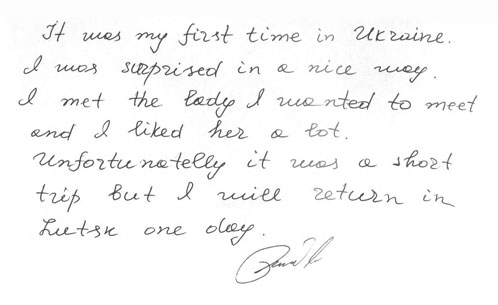 It was my first time in Ukraine.
I was surprised in a nice way.
I met the lady I wanted to meet
and I liked her a lot.
Unfortunatelly it was a short
trip but I will return in
Lutsk one day.